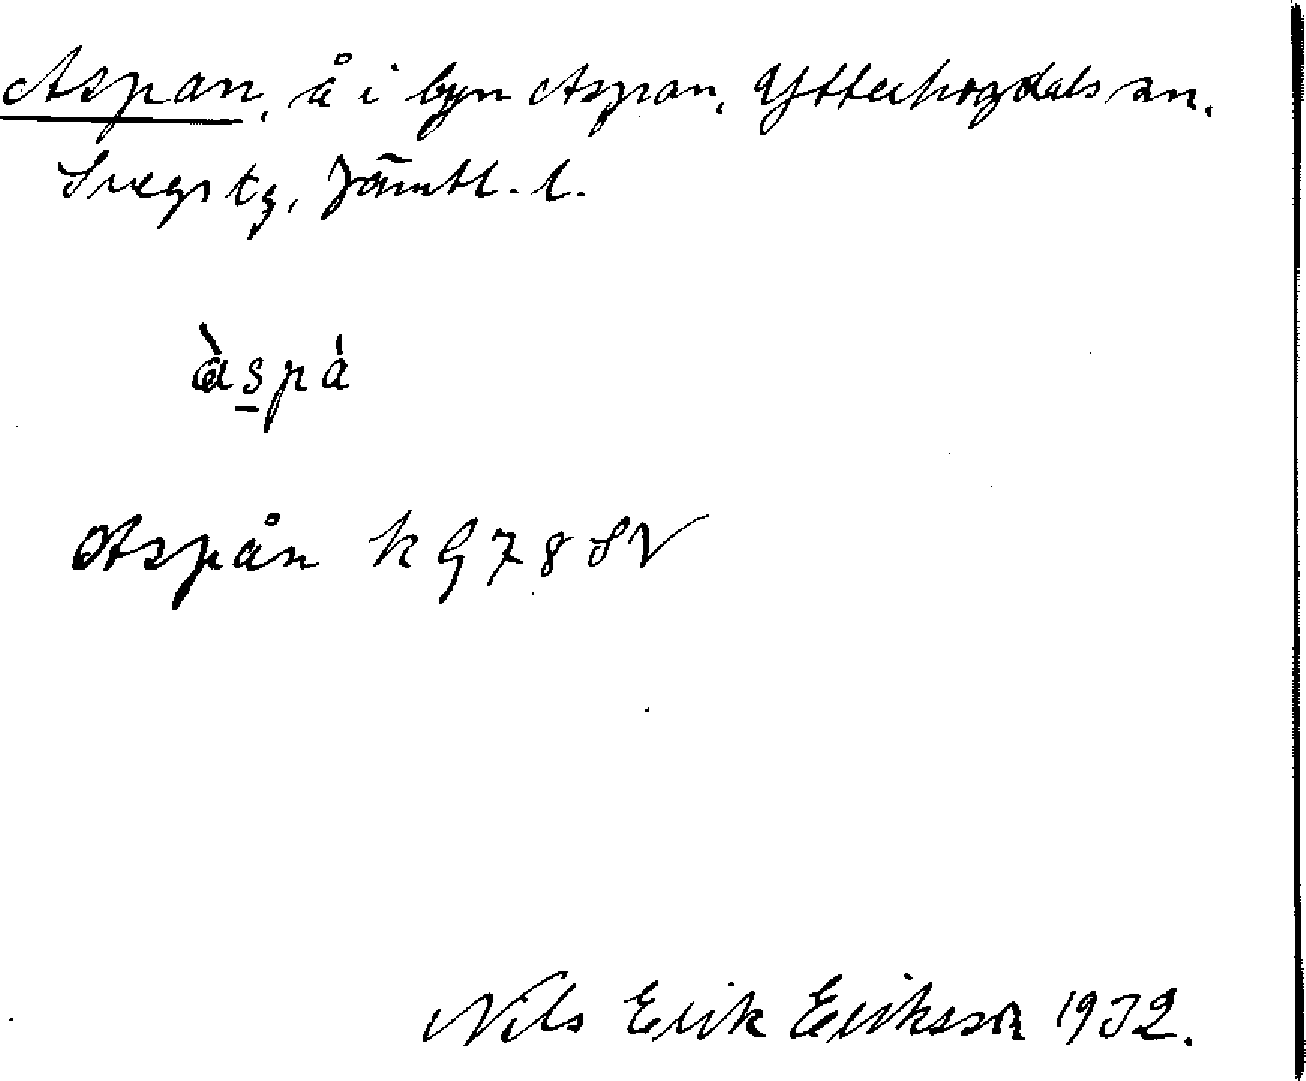 Aspan, å i byn Aspan, Ytterhogdals sn.
Svegs tg, Jämtl. l.
àspá
Aspån kG78SV
Nils Erik Eriksson 1932.